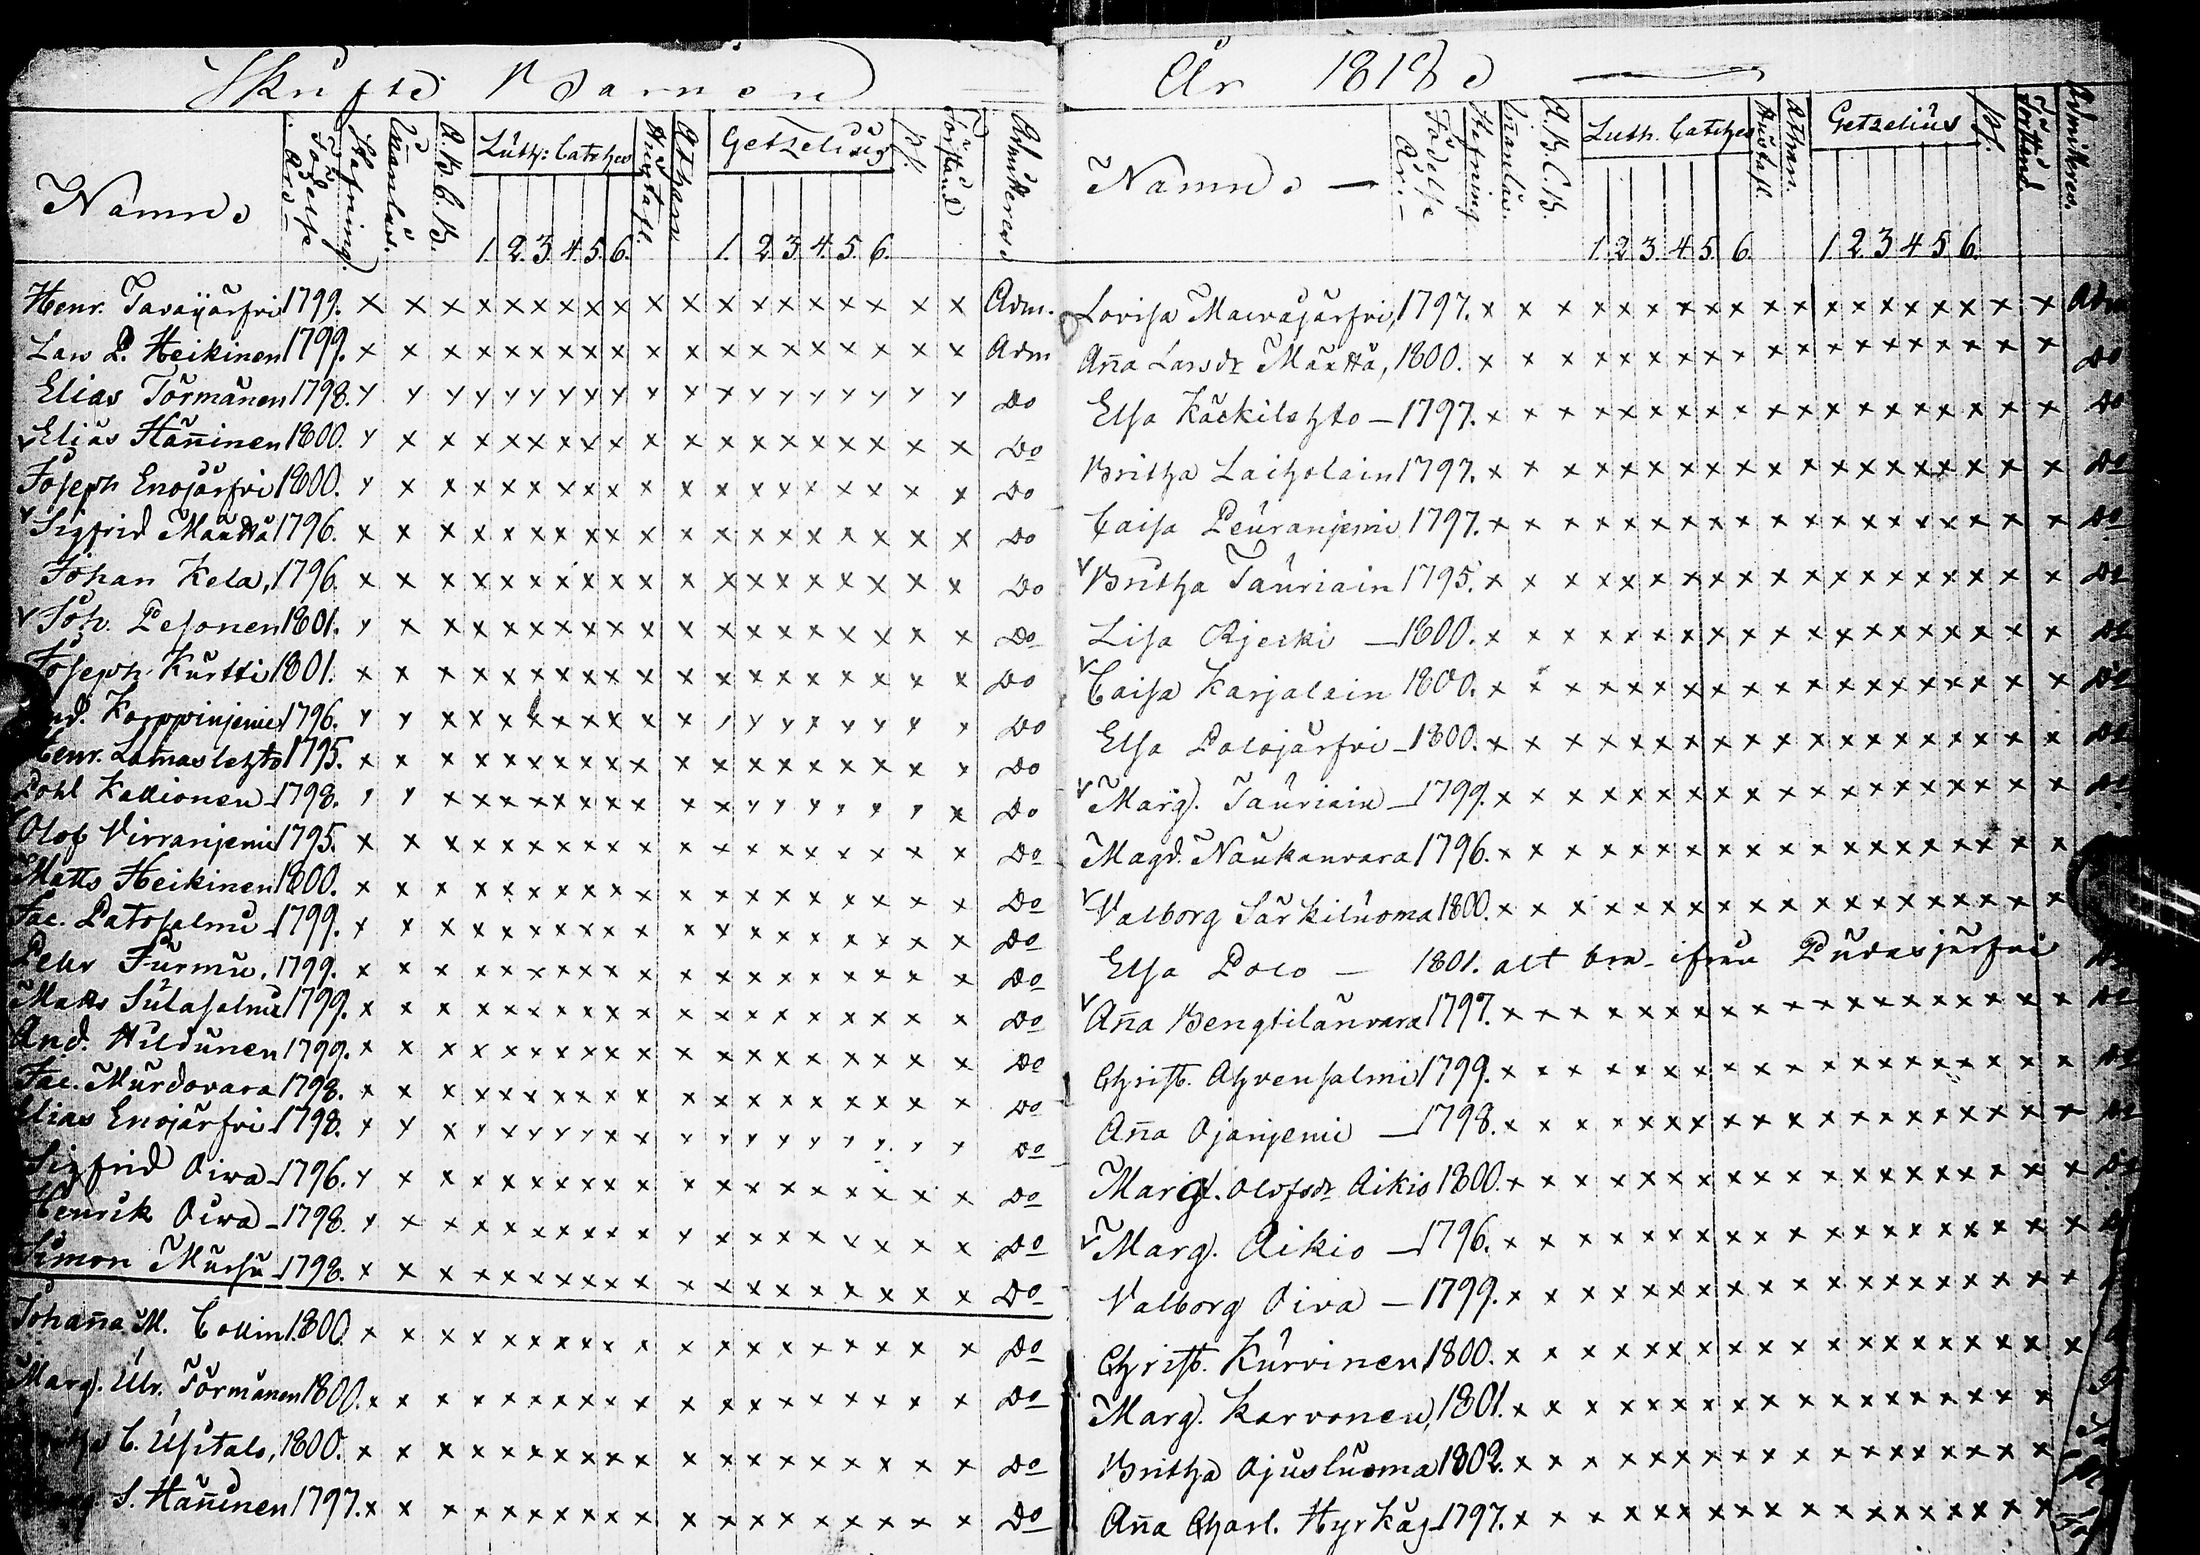 Skufts Barnen
Namn
Födelse År
Stafning
Innanläs.
A.B.C.B.
Luth: Catches
1. 2. 3. 4. 5. 6.
Hustafl.
Athan.
Getzelius
1. 2. 3. 4. 5. 6.
Ps.
Förstånd
Admitteras
Henr. Tavajärfvi 1799. x x x x x x x x x x x x x x x x x x x Adm.
Lars P. Heikinen 1799. x x x x x x x x x x x x x x x x x x x Adm
Elias Törmänen 1798. x x x x x x x x x x x x x x x x x x x Do
v Elias Häninen 1800. x x x x x x x x x x x x x x x x x x x Do
Joseph Enojärfvi 1800. x x x x x x x x x x x x x x x x x x x Do
v Sigfrid Määttä 1796. x x x x x x x x x x x x x x x x x x x Do
Johan Kela, 1796. x x x x x x x x x x x x x x x x x x x Do
v Joh. Pesonen 1801. x x x x x x x x x x x x x x x x x x x Do
Joseph Kurtti 1801. x x x x x x x x x x x x x x x x x x x Do
And. Korppinjemi 1796. x x x x x x x x x x x x x x x x x x x Do
Henr. Lamaslehto 1795. x x x x x x x x x x x x x x x x x x x Do
Pohl Kallionen 1798. x x x x x x x x x x x x x x x x x x x Do
Olof Virranjemi 1795. x x x x x x x x x x x x x x x x x x x Do
Matts Heikinen 1800. x x x x x x x x x x x x x x x x x x x Do
Jac. Patosalmi 1799. x x x x x x x x x x x x x x x x x x x Do
Pehr Jurmu, 1799. x x x x x x x x x x x x x x x x x x x Do
Matts Sulasalmi 1799. x x x x x x x x x x x x x x x x x x x Do
And. Hildunen 1799. x x x x x x x x x x x x x x x x x x x Do
Jac. Murdovara 1798. x x x x x x x x x x x x x x x x x x x Do
Elias Enojärfvi 1798. x x x x x x x x x x x x x x x x x x x Do
Sigfrid Oiva 1796. x x x x x x x x x x x x x x x x x x x Do
Henrik Oiva 1798. x x x x x x x x x x x x x x x x x x x Do
Simon Mursu 1798. x x x x x x x x x x x x x x x x x x x Do
Johaña M. Collin 1800 x x x x x x x x x x x x x x x x x x x Do
Marg. Ulr. Törmänen 1800. x x x x x x x x x x x x x x x x x x x Do
C. Usitalo, 1800. x x x x x x x x x x x x x x x x x x x Do
S. Häninen 1797. x x x x x x x x x x x x x x x x x x x Do
År 1818
Namn —
Födelse År
Stafning
Innanläs.
A.B.C.B.
Luth. Catches
1 2 3. 4 5. 6.
Hustafl.
Athan.
Getzelius
1 2 3 4 5 6.
Ps.
Förstånd
Admitteras
Lovisa Maivajärfvi, 1797. x x x x x x x x x x x x x x x x x x x Adm
Aña Larsdr Määttä, 1800. x x x x x x x x x x x x x x x x x x x Do
Elsa Käckilehto — 1797. x x x x x x x x x x x x x x x x x x x Do
Britha Laiholain 1797. x x x x x x x x x x x x x x x x x x x Do
Caisa Peuranjemi 1797. x x x x x x x x x x x x x x x x x x x Do
v Britha Tauriain 1795. x x x x x x x x x x x x x x x x x x x Do
Lisa Rjecki — 1800. x x x x x x x x x x x x x x x x x x x Do
v Caisa Karjalain 1800. x x x x x x x x x x x x x x x x x x x Do
Elsa Polojärfvi — 1800. x x x x x x x x x x x x x x x x x x x Do
v Marg. Tauriain — 1799. x x x x x x x x x x x x x x x x x x x Do
Magd. Naukanvara 1796. x x x x x x x x x x x x x x x x x x x
v Valborg Särkiluoma 1800. x x x x x x x x x x x x x x x x x x x
Elsa Polo — 1801. ifrån Pudasjerfvi Do
v Aña Bengtilänvara 1797. x x x x x x x x x x x x x x x x x x x Do
Christ. Ahvensalmi 1799. x x x x x x x x x x x x x x x x x x x Do
Aña Ojanjemi — 1798. x x x x x x x x x x x x x x x x x x x Do
Marg. Olofsdr Aikio 1800. x x x x x x x x x x x x x x x x x x x Do
v Marg. Aikio — 1796. x x x x x x x x x x x x x x x x x x x
Valborg Oiva — 1799. x x x x x x x x x x x x x x x x x x x
Christ. Kurvinen 1800. x x x x x x x x x x x x x x x x x x x
Marg. Karvonen, 1801. x x x x x x x x x x x x x x x x x x x
Britha Ojusluoma 1802. x x x x x x x x x x x x x x x x x x x
Aña Charl. Hyrkäs 1797. x x x x x x x x x x x x x x x x x x x